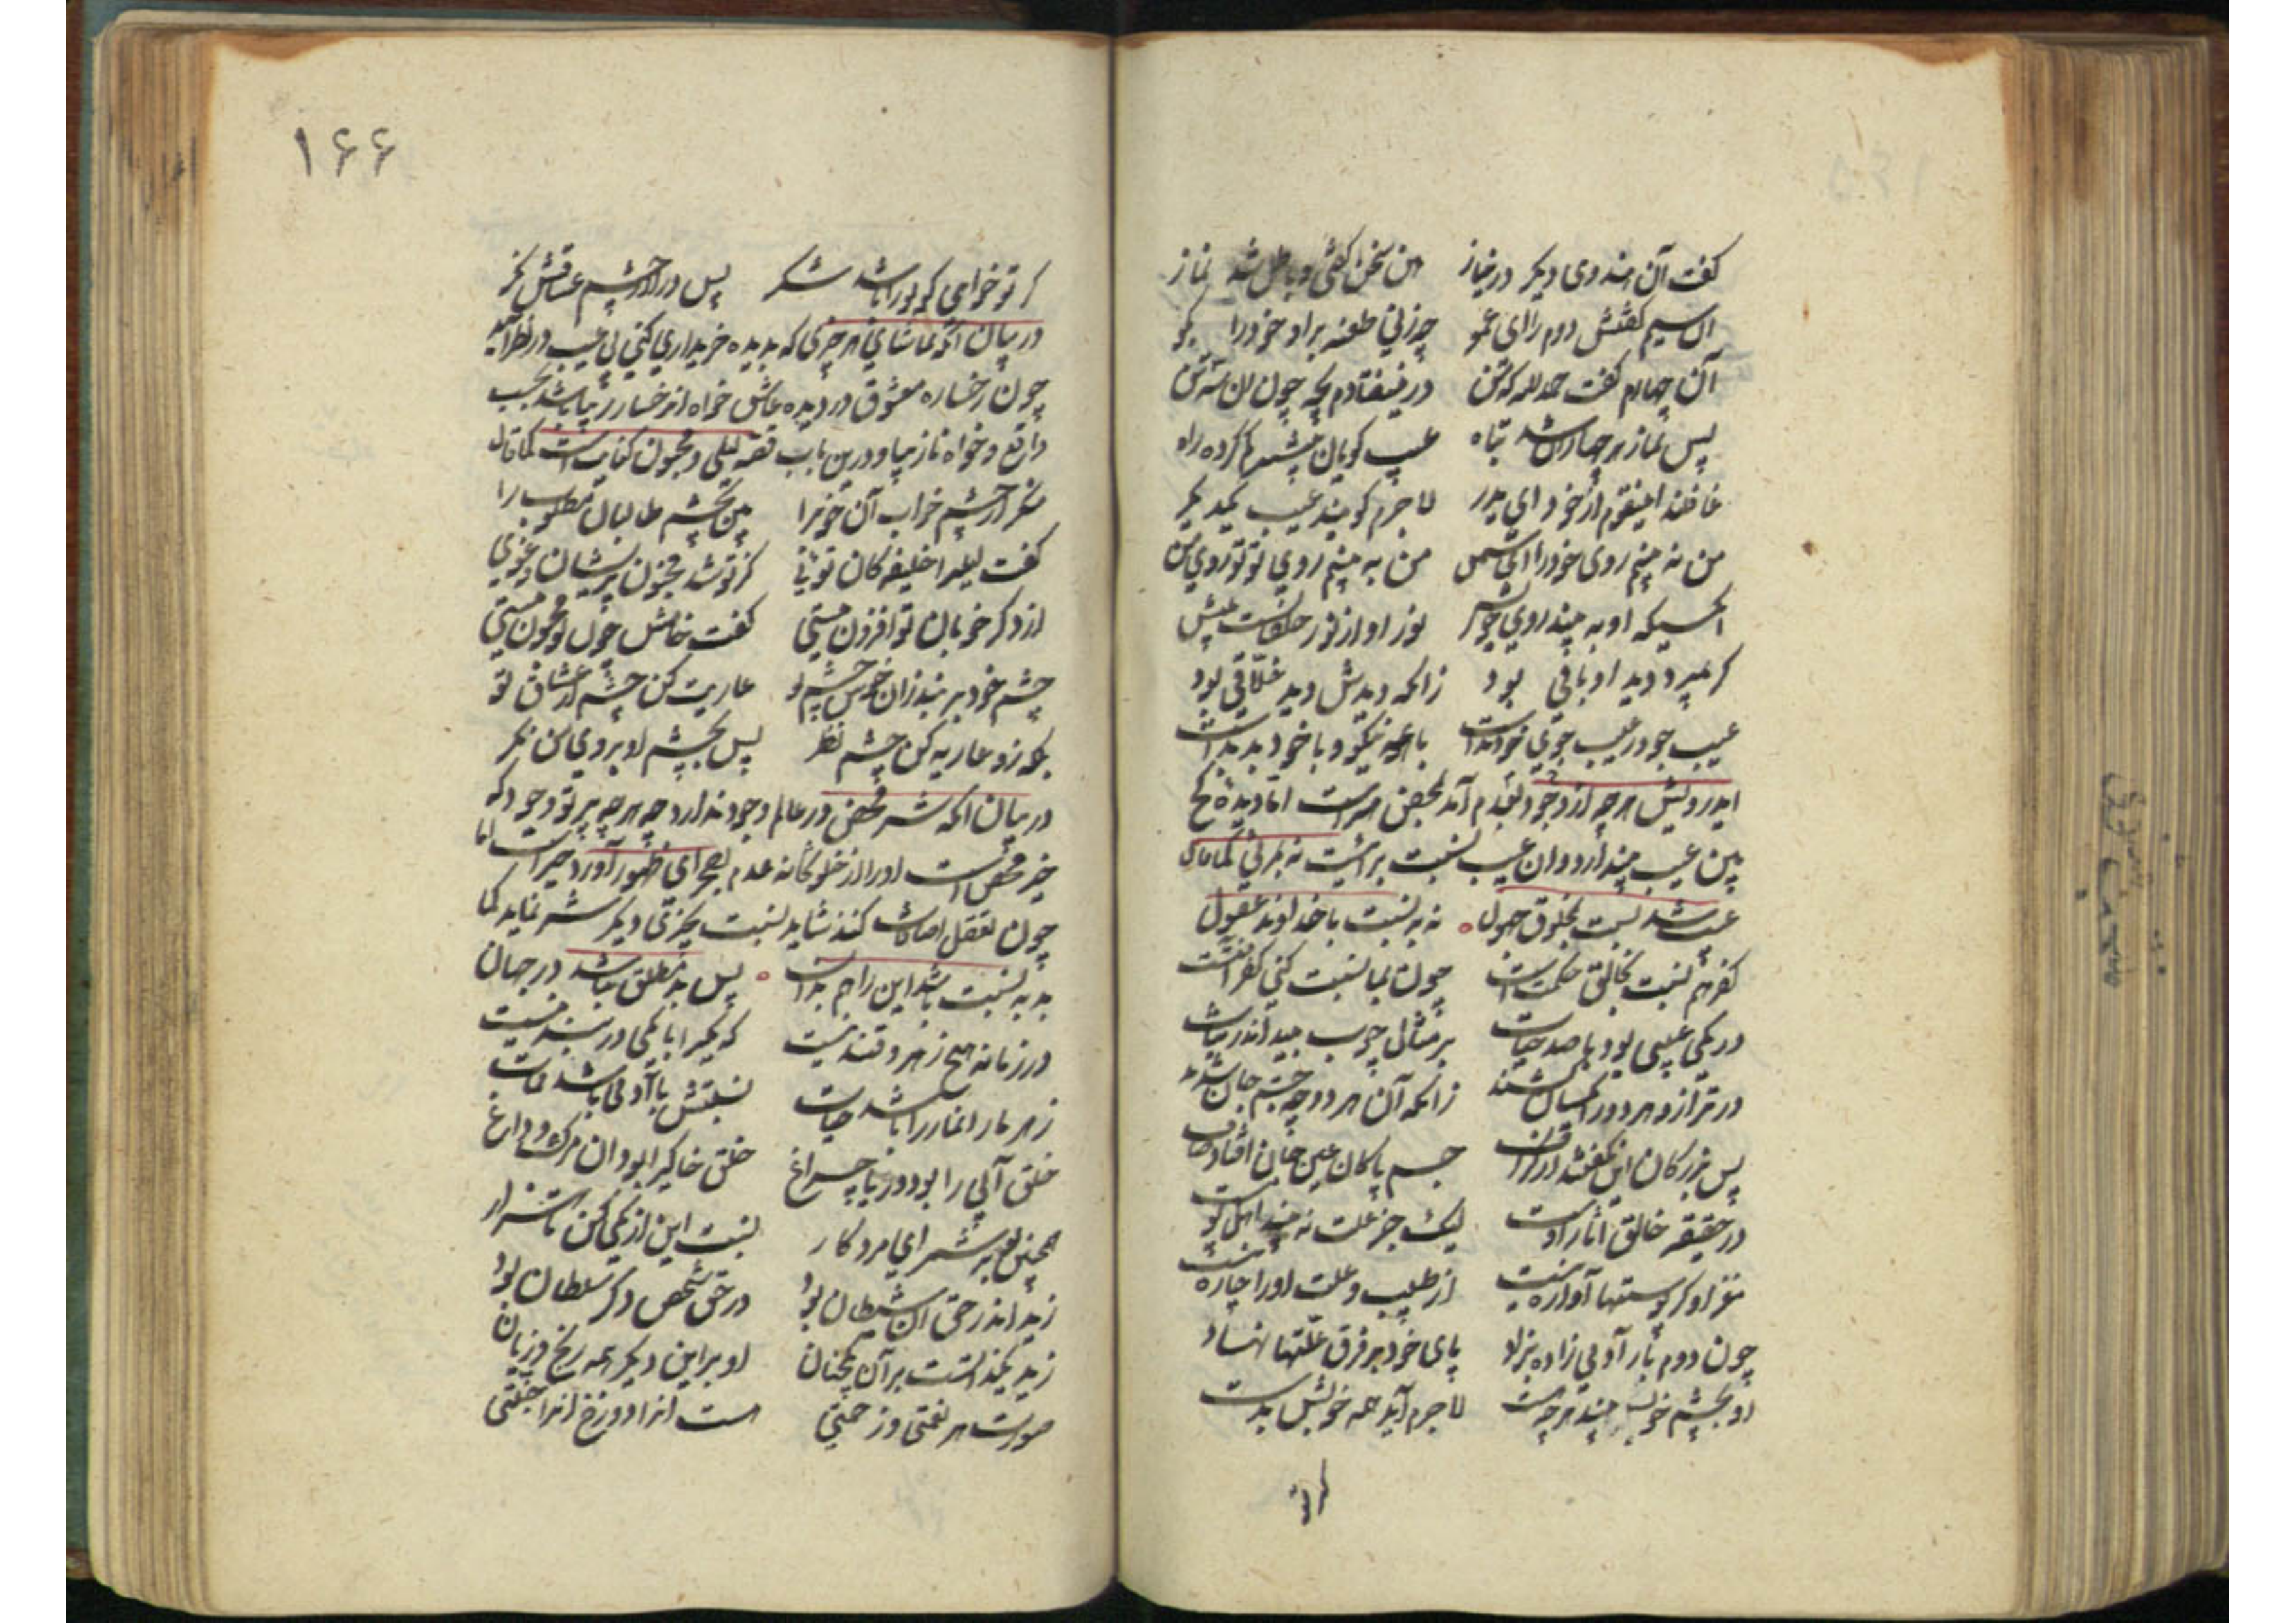 گفت آن هندوی دیگر در نیاز هین سخن گفتی و باطل شد نماز
آن سیم گفتش دوم را ای عمو چه زنی طعنه بر او خود را بگو
آن چهارم گفت حمد لله که من در نیفتادم بچه چون آن سه تن
پس نماز هر چهاران شد تباه عیب گویان بیشتر گم کرده راه
غافلند این قوم از خود ای پدر لاجرم گویند عیب یکدیگر
من نه بینم روی خود را ای شمن من به بینم روی تو تو روی من
آنکسیکه او به بیند روی خویش نور او از نور خلقانست بیش
گر بمیرد دید او باقی بود زانکه دیدش دید خلاقی بود
باهمه نیکو و با خود بد بدست
ایدرویش هرچه از وجود بعدم آمد محض خیر است اما دیده کج
بین عیب بیند از دو آن عیب نسبت برائیست نه بمرئی کما قال
عیب شد نسبت بمخلوق جهول نه به نسبت با خداوند عقول
کفر هم نسبت بخالق حکمت است چون بما نسبت کنی کفر آفتست
در یکی عیبی بود با صد حیات بر مثال چوب بید اندر نبات
در ترازو هر دو را یکسان کشند زانکه آن هر دو چو جسم و جان خوشند
پس بزرگان این نگفتند از گزاف جسم پاکان عین جان افتاد صاف
در حقیقه خالق آثار اوست لیک جز علت نه بیند اهل پوست
مغز او کز پوستها آواره نیست از طبیب و علت او را چاره نیست
چون دوم بار آدمی زاده بزاد پای خود بر فرق علتها نهاد
لاجرم آید همه خویش بدست
گر تو
۱۶۶
گر تو خواهی کو تو را باشد شکر پس در او از چشم عشاقش نگر
در بیان آنکه تماشای هر چیزی که بدیده خریداری کنی بی عیب در نظر آید
چون رخساره معشوق در دیده عاشق خواه آن رخسار زیبا باشد بحسب
واقع و خواه نازیبا و درین باب قصه لیلی و مجنون کفایت است کما قال
منگر از چشم خواب آن خوب را بین بچشم طالبان مطلوب را
گفت لیلی را خلیفه کان توئی کز تو شد مجنون پریشان و غوی
از دگر خوبان تو افزون نیستی گفت خامش چون تو مجنون نیستی
چشم خود بربند زان خوش چشم تو عاریت کن چشم از عشاق تو
بلکه زو عاریه کن چشم نظر پس بچشم او بروی من نگر
در بیان آنکه شر محض در عالم وجود ندارد چه هرچه پرتو وجود که
خیر محض است او را از خلوتخانه عدم بصحرای ظهور آورد خیر است اما
چون بتعقل اضافات کنند شاید نسبت بچیزی دیگر شر نماید کما
بد به نسبت باشد این را هم بدان پس بد مطلق نباشد در جهان
در زمانه هیچ زهر و قند نیست که یکی را پا یکی در بند نیست
زهر مار آن مار را باشد حیات نسبتش با آدمی باشد ممات
خلق آبی را بود دریا چو باغ خلق خاکی را بود آن مرگ و داغ
همچنین بر میشمر ای مرد کار نسبت این از یکی کن تا هزار
زید اندر حق آن شیطان بود در حق شخص دگر سلطان بود
او بر این دیگر همه رنج و زیان
صورت هر نعمتی و زحمتی هست آنرا دوزخ اینرا جنتی